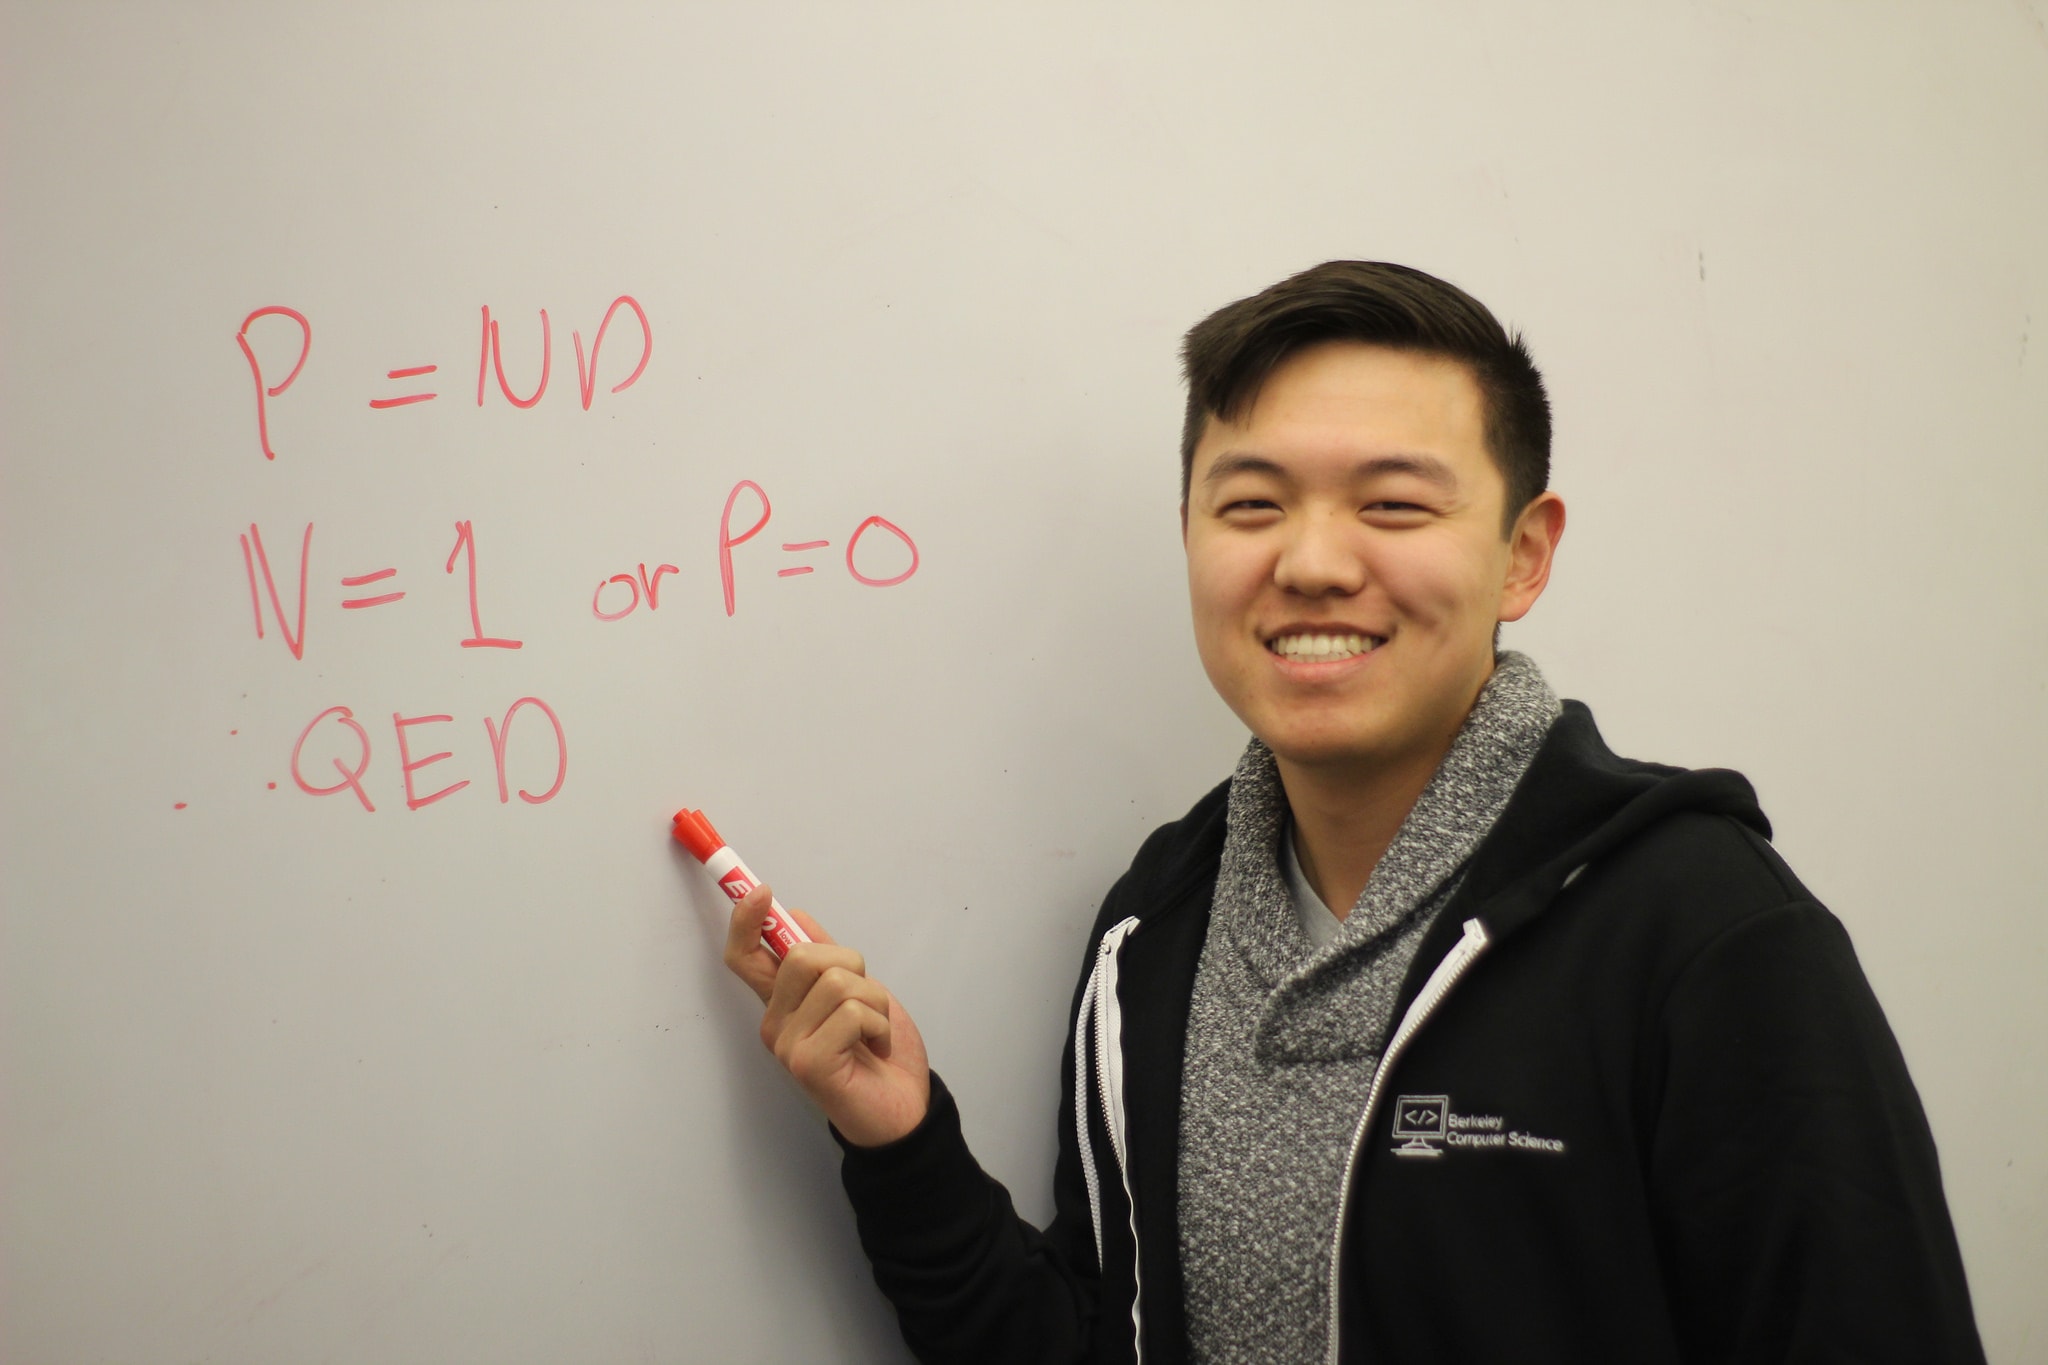 P = NP
N = 1 or P = 0
∴ QED
Berkeley
Computer Science